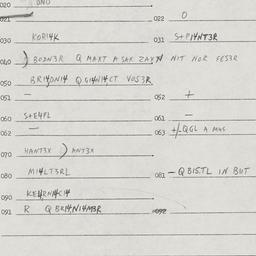 020 ONO
021 022 O
030 KORI4K 031 S+PI4NT3R
040 ) BODN3R Q MAXT A SAX ZAY71 NIT NOR FES3R
050 BRI4DNI4 Q GI4NI4CT VOS3R
051 — 052 +
060 S+E4PL 061 —
062 — 063 +/- QGL A MAG
070 HANT3X ) ANT3X
080 MI4LT3RL 081 — QBISTL IN BUT
090 KE4RNI4CI4
091 R Q BRI4NI4M3R 092